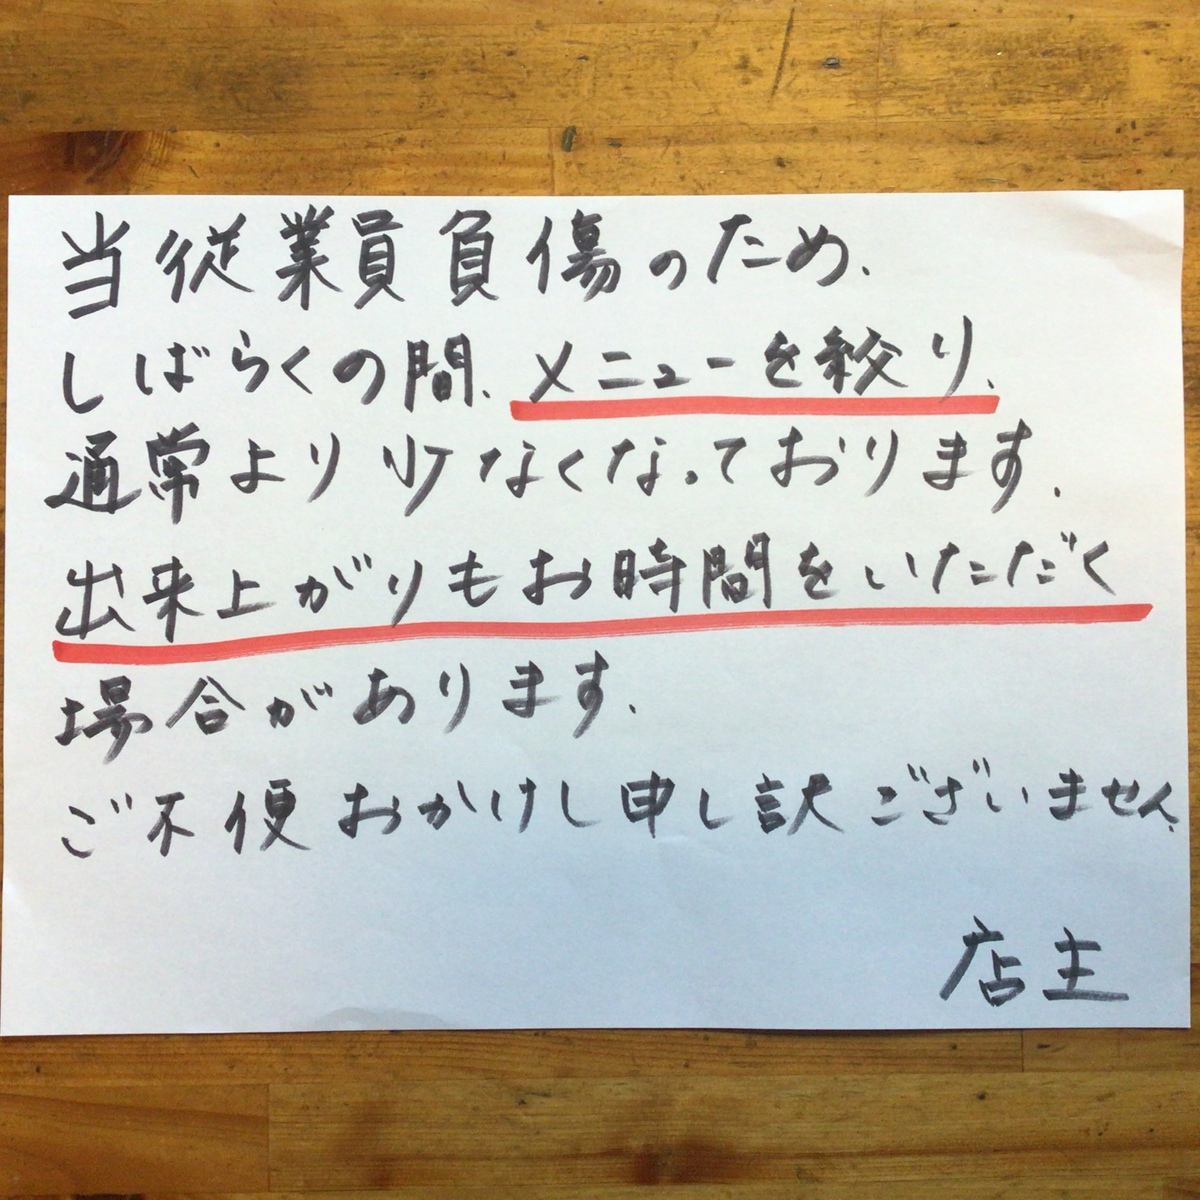 当従業員負傷のため、
しばらくの間、メニューを絞り、
通常より少なくなっております。
出来上がりもお時間をいただく
場合があります。
ご不便おかけし申し訳ございません。
店主